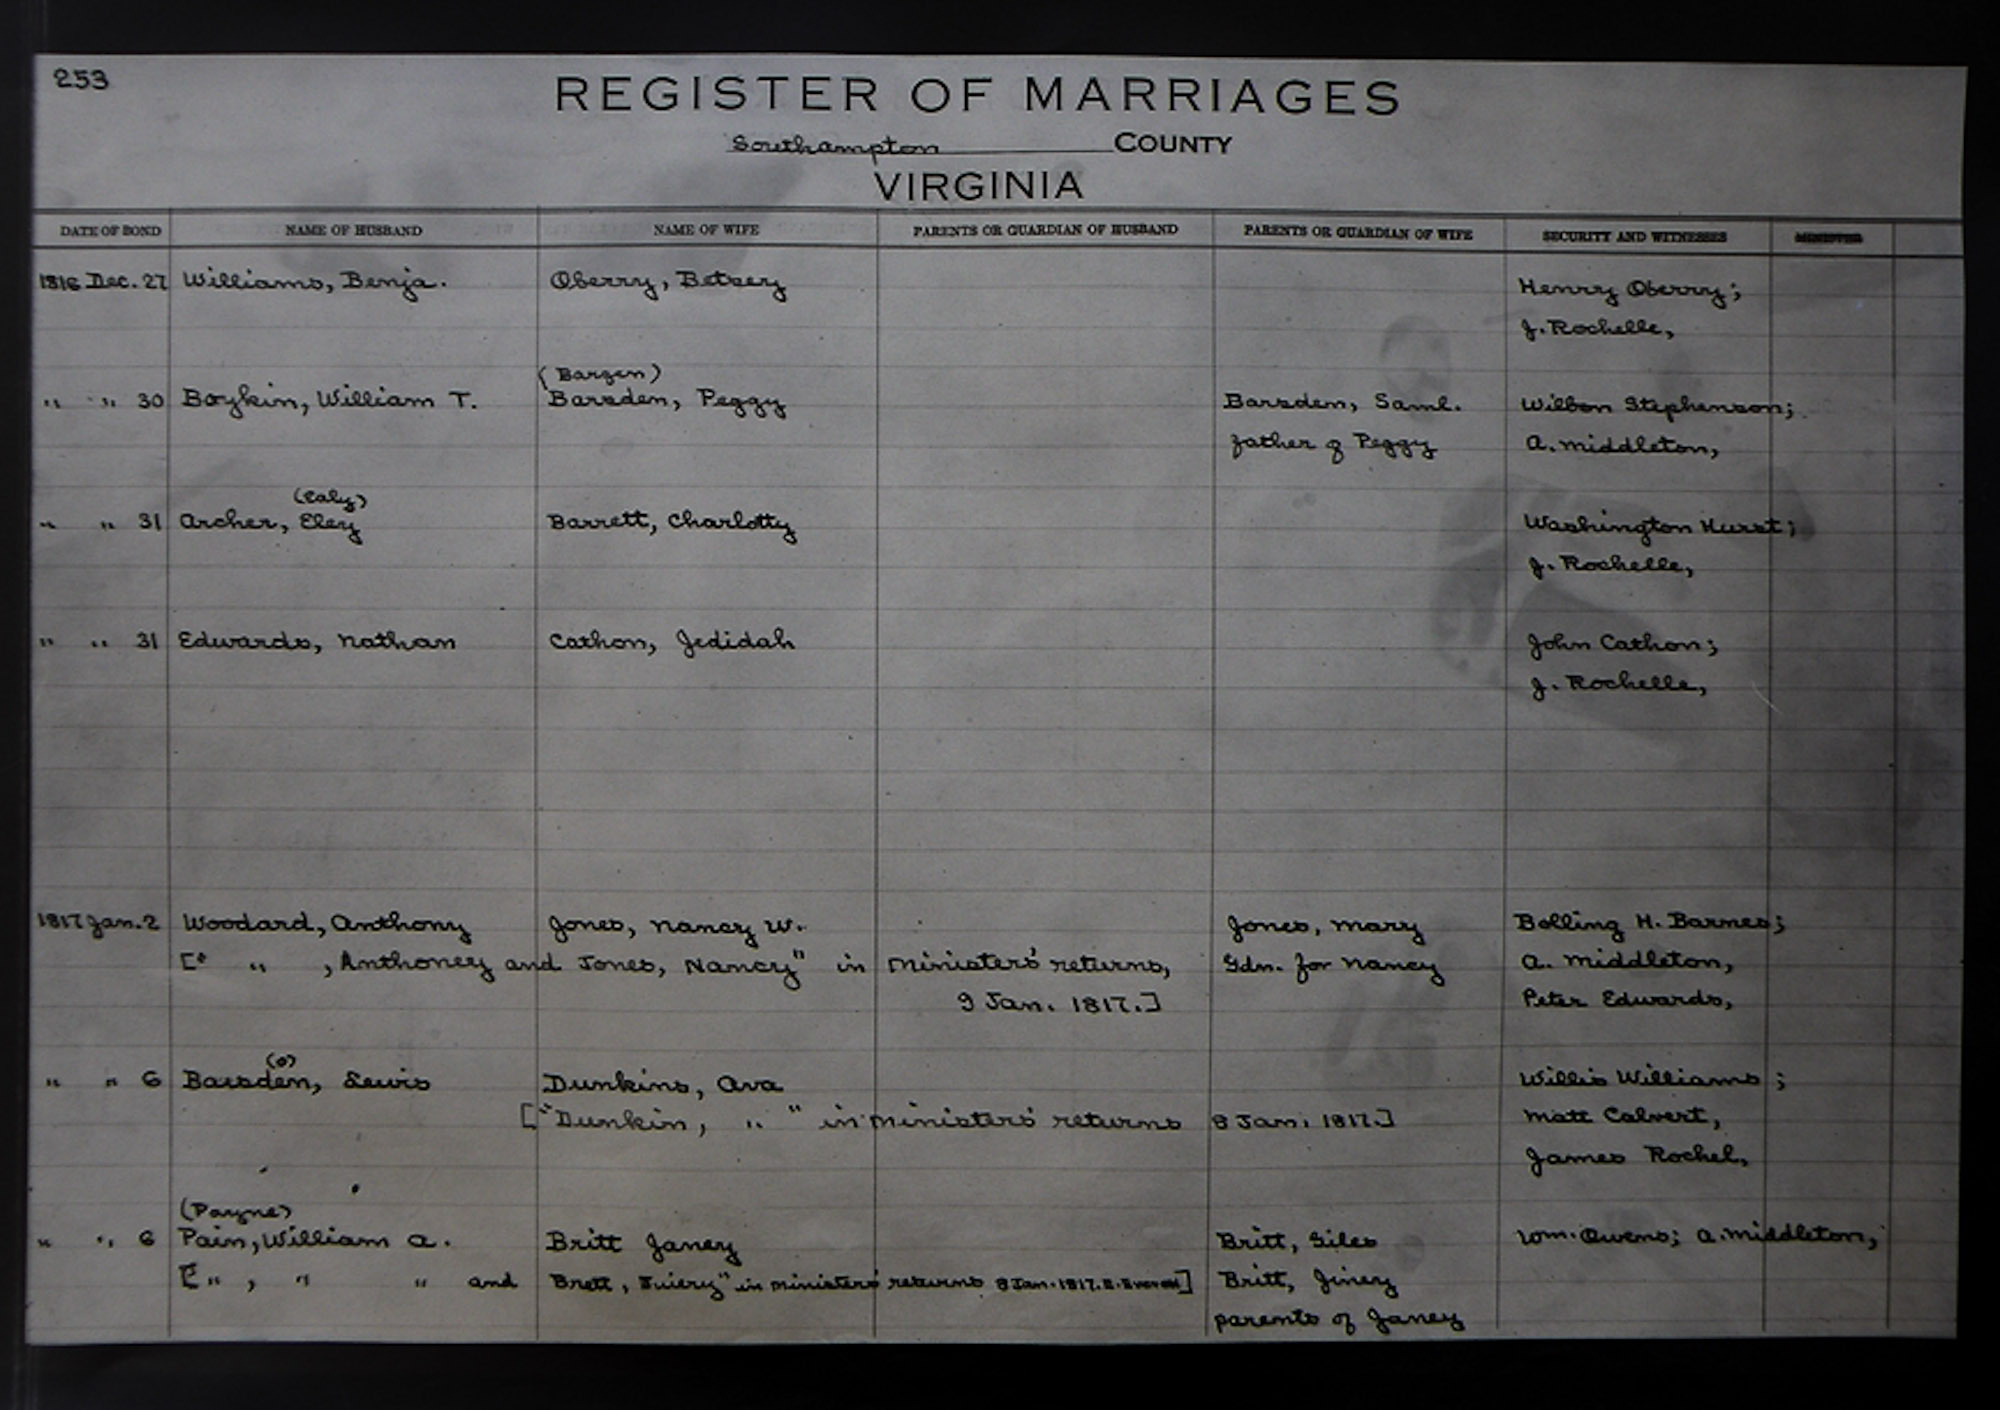 253
REGISTER OF MARRIAGES
Southampton COUNTY
VIRGINIA
DATE OF BOND NAME OF HUSBAND NAME OF WIFE PARENTS OR GUARDIAN OF HUSBAND PARENTS OR GUARDIAN OF WIFE SECURITY AND WITNESSES MINISTER
1816 Dec. 27 Williams, Benja. Oberry, Betsey Henry Oberry;
J. Rochelle,
(Barzen)
" " 30 Boykin, William T. Barsden, Peggy Barsden, Saml. Wilson Stephenson;
father of Peggy A. Middleton,
(Ealy)
" " 31 Archer, Eley Barrett, Charlotty Washington Hurst;
J. Rochelle,
" " 31 Edwards, Nathan Cathon, Jedidah John Cathon;
J. Rochelle,
1817 Jan. 2 Woodard, Anthony Jones, Nancy W. Jones, Mary Bolling H. Barnes;
[" " , Anthoney and Jones, Nancy" in Ministers' returns, Gdn. for Nancy A. Middleton,
9 Jan. 1817.] Peter Edwards,
(o)
" " 6 Barsden, Lewis Dunkins, Ava Willis Williams;
["Dunkin, " " in Ministers' returns 8 Jan. 1817.] Matt Calvert,
James Rochel,
(Payne)
" " 6 Pain, William A. Britt Janey Britt, Giles Wm. Owens; A. Middleton,
[" , " " and Brett, " in Ministers' returns 8 Jan. 1817. ] Britt, Jiney
parents of Janey